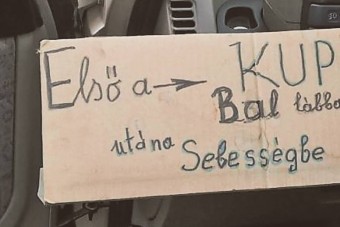 Első a → KUP
Bal lábba
utána Sebességbe